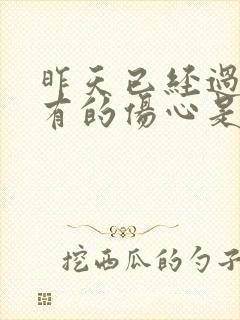 昨天已經過
有的傷心是
挖西瓜的勺子